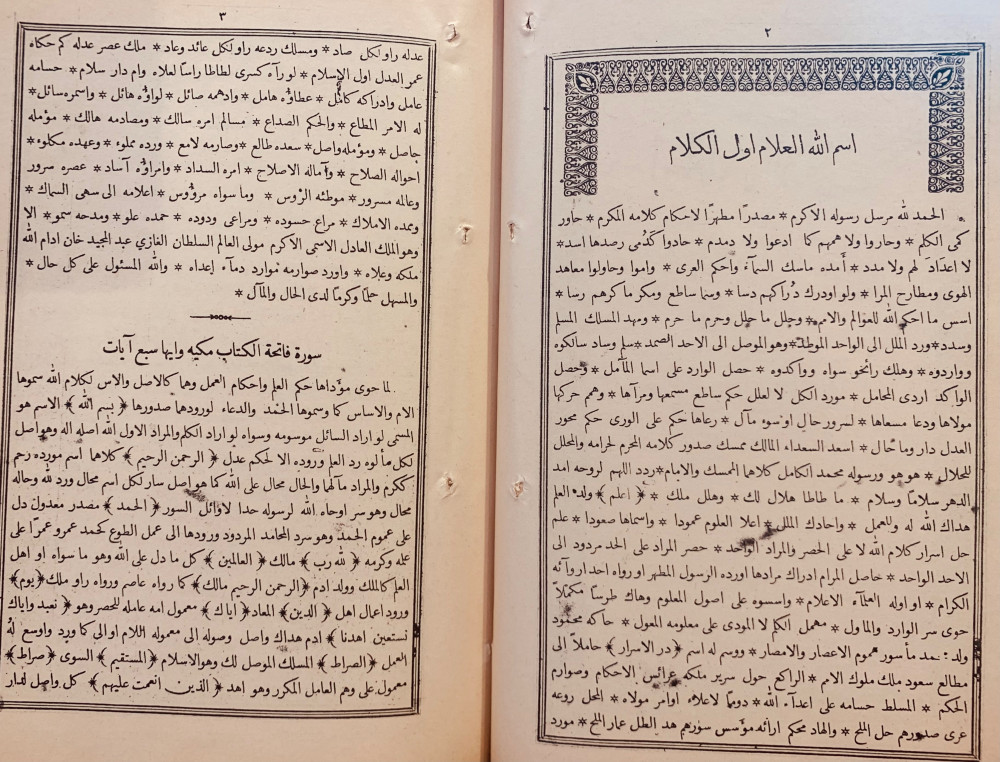 ٢
اسم الله العلام اول الكلام
الحمد لله مرسل رسوله الاكرم * مصدرا مطهرا لاحكام كلامه المكرم * حاور
كمى الكلم * وحاروا ولا همهم كما ادعوا ولا دمدم * حادوا كدمى رصدها اسد *
لا اعداد لهم ولا مدد * أمده ماسك السمآء واحكم العرى * واموا وحاولوا معاهد
الهوى ومطارح المرا * ولو اودرك دراكهم دسا * وسنا ساطع ومكر ماكرهم رسا *
اسس ما احكم الله للعوالم والامم * وحلل ما حلل وحرم ما حرم * ومهد المسلك المسلم
وسدد * ورد الملل الى الواحد الموطد * وهو الموصل الى الاحد الصمد * سلم وساد سالكوه
وواردوه * وهلك رائحو سواه وواكدوه * حصل الوارد على اسما المآمل * وحصل
الواكد اردى المحامل * مورد الكل لا لعلل حكم ساطع مسمعها ومرآها * وهم حركها
مولاها ودعا مسعاها * لسرور حال او سوء مآل * رعاها حكم على الورى حكم محور
العدل دار وما حال * اسعد السعداء المالك تمسك صدور كلامه المحرم لحرامه والمحلل
للحلال * هو هو ورسوله محمد الكامل كلاهما الممسك والامام * ردد اللهم لروحه امد
الدهر سلاما وسلام * ما طاطا هلال لك * وهلل ملك * ﴿ اعلم ﴾ ولد العلم
هداك الله له وللعمل * واحادك الملل * اعلا العلوم عمودا * واسماها صعودا * علم
حل اسرار كلام الله لا على الحصر والمراد الواحد * حصر المراد على الحد مردود الى
الاحد الواحد * حاصل المرام ادراك مرادها اورده الرسول المطهر او رواه احد اروآئه
الكرام * او اوله العلمآء الاعلام * واسسوه على اصول المعلوم وهاك طرسا مكملا
حوى سر الوارد والماول * مهمل الكلم لا المودى على معلومه المعول * حاكه محمود
ولد محمد مأسور هموم الاعصار والامصار * ووسم له اسم ﴿ در الاسرار ﴾ حاملا الى
مطالع سعود ملك ملوك الامم * الراكع حول سرير ملكه عرائس الاحكام وصوارم
الحكم * المسلط حسامه على اعدآء الله * دوما لاعلاء اوامر مولاه * المحل روعه
عرى صدورهم حل الملح * والهاد محكم ارائه مؤسس سورهم هد الطل عمار الملح * مورد
٣
عدله راو لكل صاد * ومسلك ردعه راو لكل عائد وعاد * ملك عصر عدله كم حكاه
عمر العدل اول الإسلام * لو رآه كسرى لطاطا راسا لعلاه وام دار سلام * حسامه
عامل وادراكه كامل * عطاؤه هامل * وادهمه صائل * لواؤه هائل * واسمره سائل *
له الامر المطاع * والحكم الصداع * مسالم امره سالك * ومصادمه هالك * مؤمله
حاصل * ومؤمله واصل * سعده طالع * وصارمه لامع * ورده مملوء * وعهده مكلوء *
احواله الصلاح * وآماله الاصلاح * امره السداد * وامراؤه آساد * عصره سرور
وعالمه مسرور * موطئه الرؤس * وما سواه مرؤوس * اعلامه الى سهى السماك *
وممده الاملاك * مراع حسوده * ومراعى ودوده * حمده علو * ومدحه سمو * الا
وهو الملك العادل الاسمى الاكرم مولى العالم السلطان الغازي عبد المجيد خان ادام الله
ملكه وعلاه * واورد صوارمه موارد دمآء اعداه * والله المسئول على كل حال *
والمسهل حلما وكرما لدى الحال والمآل *
سورة فاتحة الكتاب مكيه وايها سبع آيات
لما حوى مؤداها حكم العلم واحكام العمل وهما كالاصل والاس لكلام الله سموها
الام والاساس كما وسموها الحمد والدعاء لورودهما صدورها ﴿ بسم الله ﴾ الاسم هو
المسمى لو اراد السائل موسومه وسواه لو اراد الكلم والمراد الاول الله اصله اله وهو اصل
لكل مألوه رد العلم وروده الا لحكم عدل ﴿ الرحمن الرحيم ﴾ كلاهما اسم مورده رحم
ككرم والمراد مآلهما والحال محال على الله كما هو اصل سار لكل اسم محال ورد لله وحاله
محال وهو سر اوحاه الله لرسوله حدا لاوائل السور ﴿ الحمد ﴾ مصدر معدول دل
على عموم الحمد وهو سرد المحامد المردود ورودها الى عمل الطوع كحمد عمرو عمرا على
علمه وكرمه ﴿ لله رب ﴾ مالك ﴿ العالمين ﴾ كل ما دل على الله وهو ما سواه او اهل
العلم كالملك وولد ادم ﴿ الرحمن الرحيم مالك ﴾ كما رواه عاصم ورواه راو ملك ﴿ يوم ﴾
ورود اعمال اهل ﴿ الدين ﴾ المعاد ﴿ اياك ﴾ معمول امه عامله للحصر وهو ﴿ نعبد واياك
نستعين اهدنا ﴾ ادم هداك واصل وصوله الى معموله اللام او الى كما ورد واوسع له
العمل ﴿ الصراط ﴾ المسلك الموصل لك وهو الاسلام ﴿ المستقيم ﴾ السوى ﴿ صراط ﴾
معمول على وهم العامل المكرر وهو اهد ﴿ الذين انعمت عليهم ﴾ كل واصل لدار